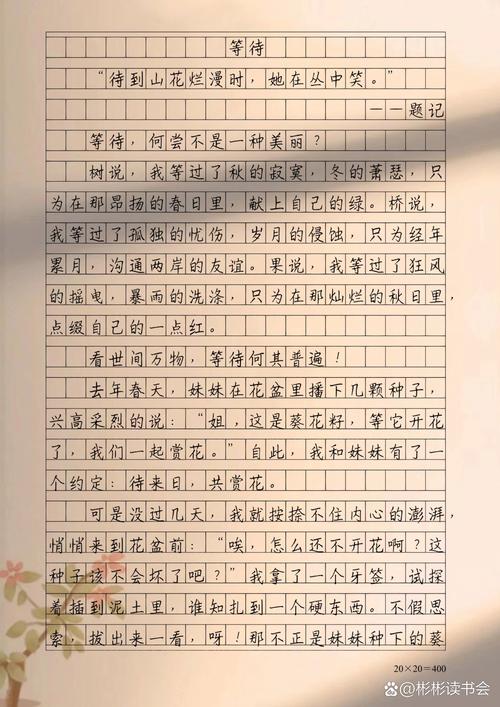 等待
“待到山花烂漫时，她在丛中笑。”
——题记
等待，何尝不是一种美丽？
树说，我等过了秋的寂寞，冬的萧瑟，只
为在那昂扬的春日里，献上自己的绿。桥说，
我等过了孤独的忧伤，岁月的侵蚀，只为经年
累月，沟通两岸的友谊。果说，我等过了狂风
的摇曳，暴雨的洗涤，只为在那灿烂的秋日里，
点缀自己的一点红。
看世间万物，等待何其普遍！
去年春天，妹妹在花盆里播下几颗种子，
兴高采烈的说：“姐，这是葵花籽，等它开花
了，我们一起赏花。”自此，我和妹妹有了一
个约定：待来日，共赏花。
可是没过几天，我就按捺不住内心的澎湃，
悄悄来到花盆前：“唉，怎么还不开花啊？这
种子该不会坏了吧？”我拿了一个牙签，试探
着插到泥土里，谁知扎到一个硬东西。不假思
索，拔出来一看，呀！那不正是妹妹种下的葵
20×20=400
@彬彬读书会